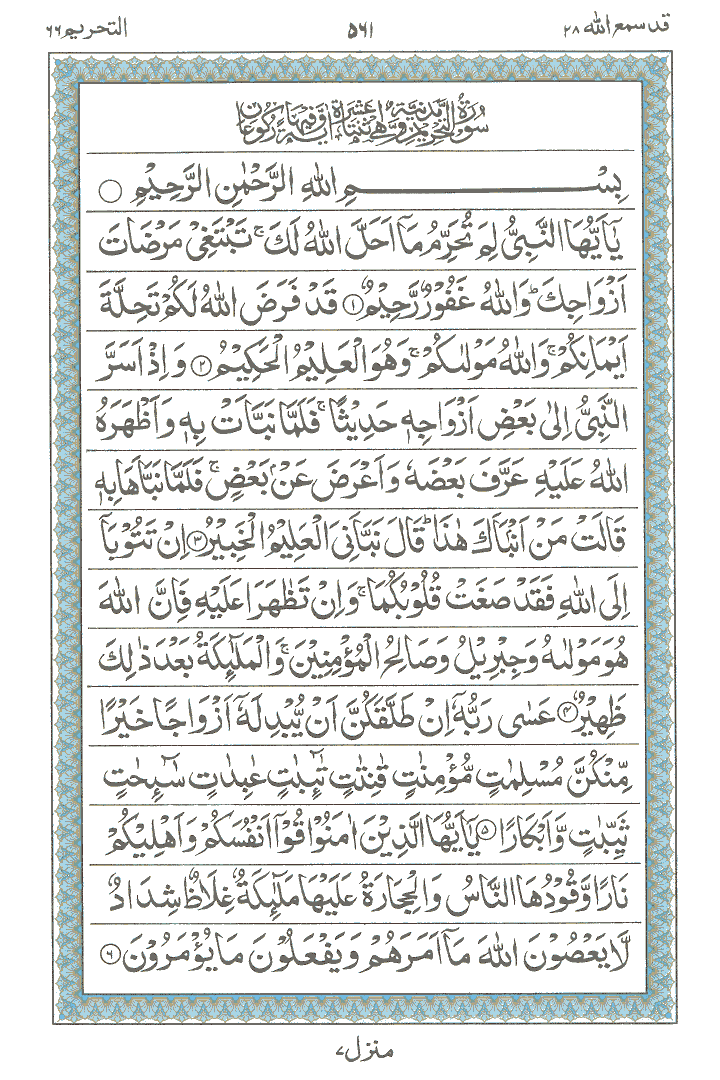 قد سمع الله ٢٨
٥٦١
التحريم ٦٦
سُوْرَةُ التَّحْرِيْمِ مَدَنِيَّةٌ وَّهِيَ اثْنَتَا عَشْرَةَ اٰيَةً وَّفِيْهَا رُكُوْعَانِ
بِسْمِ اللهِ الرَّحْمٰنِ الرَّحِيْمِ ○
يٰۤاَيُّهَا النَّبِيُّ لِمَ تُحَرِّمُ مَاۤ اَحَلَّ اللهُ لَكَ ۚ تَبْتَغِيْ مَرْضَاتَ
اَزْوَاجِكَ ؕ وَاللهُ غَفُوْرٌ رَّحِيْمٌ ۝١ قَدْ فَرَضَ اللهُ لَكُمْ تَحِلَّةَ
اَيْمَانِكُمْ ۚ وَاللهُ مَوْلٰىكُمْ ۚ وَهُوَ الْعَلِيْمُ الْحَكِيْمُ ۝٢ وَاِذْ اَسَرَّ
النَّبِيُّ اِلٰى بَعْضِ اَزْوَاجِهٖ حَدِيْثًا ۚ فَلَمَّا نَبَّاَتْ بِهٖ وَاَظْهَرَهُ
اللهُ عَلَيْهِ عَرَّفَ بَعْضَهٗ وَاَعْرَضَ عَنْۢ بَعْضٍ ۚ فَلَمَّا نَبَّاَهَا بِهٖ
قَالَتْ مَنْ اَنْۢبَاَكَ هٰذَا ؕ قَالَ نَبَّاَنِيَ الْعَلِيْمُ الْخَبِيْرُ ۝٣ اِنْ تَتُوْبَاۤ
اِلَى اللهِ فَقَدْ صَغَتْ قُلُوْبُكُمَا ۚ وَاِنْ تَظٰهَرَا عَلَيْهِ فَاِنَّ اللهَ
هُوَ مَوْلٰىهُ وَجِبْرِيْلُ وَصَالِحُ الْمُؤْمِنِيْنَ ۚ وَالْمَلٰٓئِكَةُ بَعْدَ ذٰلِكَ
ظَهِيْرٌ ۝٤ عَسٰى رَبُّهٗۤ اِنْ طَلَّقَكُنَّ اَنْ يُّبْدِلَهٗۤ اَزْوَاجًا خَيْرًا
مِّنْكُنَّ مُسْلِمٰتٍ مُّؤْمِنٰتٍ قٰنِتٰتٍ تٰٓئِبٰتٍ عٰبِدٰتٍ سٰٓئِحٰتٍ
ثَيِّبٰتٍ وَّاَبْكَارًا ۝٥ يٰۤاَيُّهَا الَّذِيْنَ اٰمَنُوْا قُوْۤا اَنْفُسَكُمْ وَاَهْلِيْكُمْ
نَارًا وَّقُوْدُهَا النَّاسُ وَالْحِجَارَةُ عَلَيْهَا مَلٰٓئِكَةٌ غِلَاظٌ شِدَادٌ
لَّا يَعْصُوْنَ اللهَ مَاۤ اَمَرَهُمْ وَيَفْعَلُوْنَ مَا يُؤْمَرُوْنَ ۝٦
منزل ٧